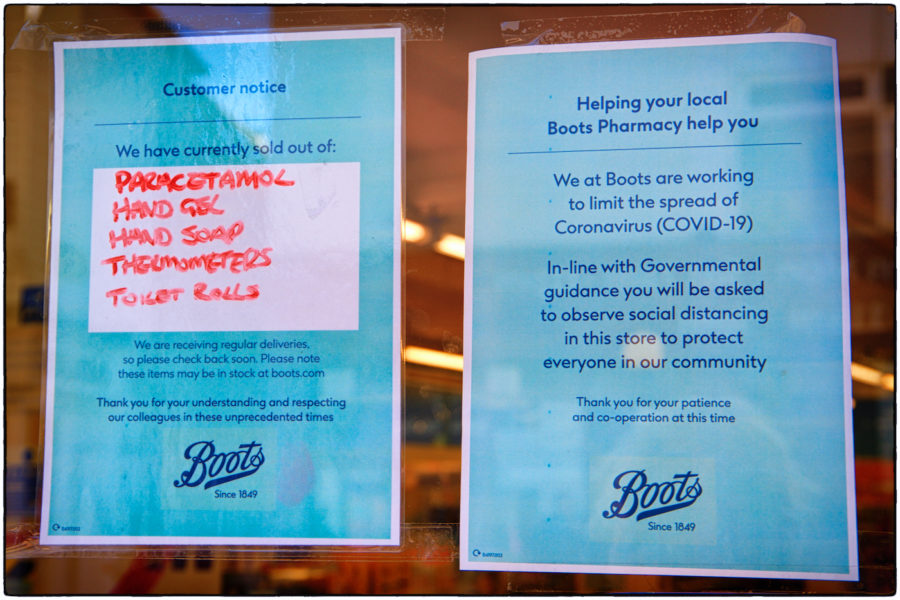 Customer notice
We have currently sold out of:
PARACETAMOL
HAND GEL
HAND SOAP
THERMOMETERS
TOILET ROLLS
We are receiving regular deliveries,
so please check back soon. Please note
these items may be in stock at boots.com
Thank you for your understanding and respecting
our colleagues in these unprecedented times
Boots
Since 1849
Helping your local
Boots Pharmacy help you
We at Boots are working
to limit the spread of
Coronavirus (COVID-19)
In-line with Governmental
guidance you will be asked
to observe social distancing
in this store to protect
everyone in our community
Thank you for your patience
and co-operation at this time
Boots
Since 1849